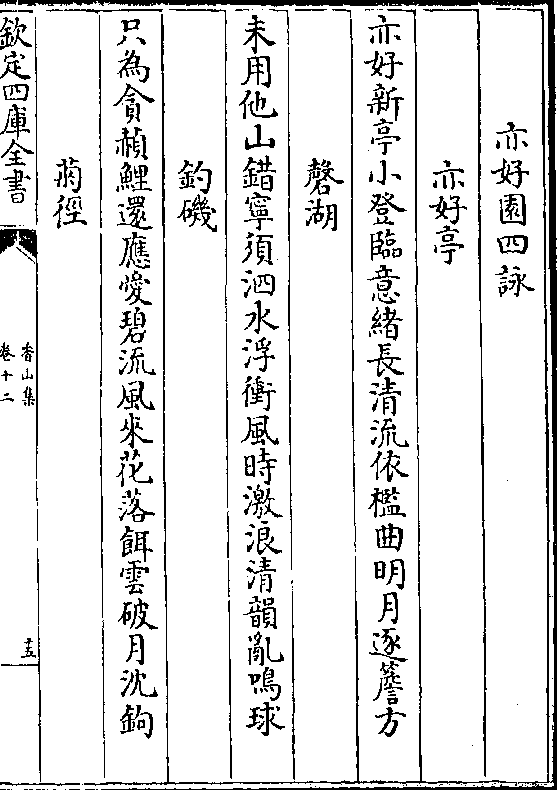 亦好園四詠
亦好亭
亦好新亭小登臨意緒長清流依檻曲明月逐簷方
磬湖
未用他山錯寧須泗水浮衝風時激浪清韻亂鳴球
釣磯
只為貪赬鯉還應愛碧流風來花落餌雲破月沈鉤
蔣徑
欽定四庫全書
香山集
卷十二
十五